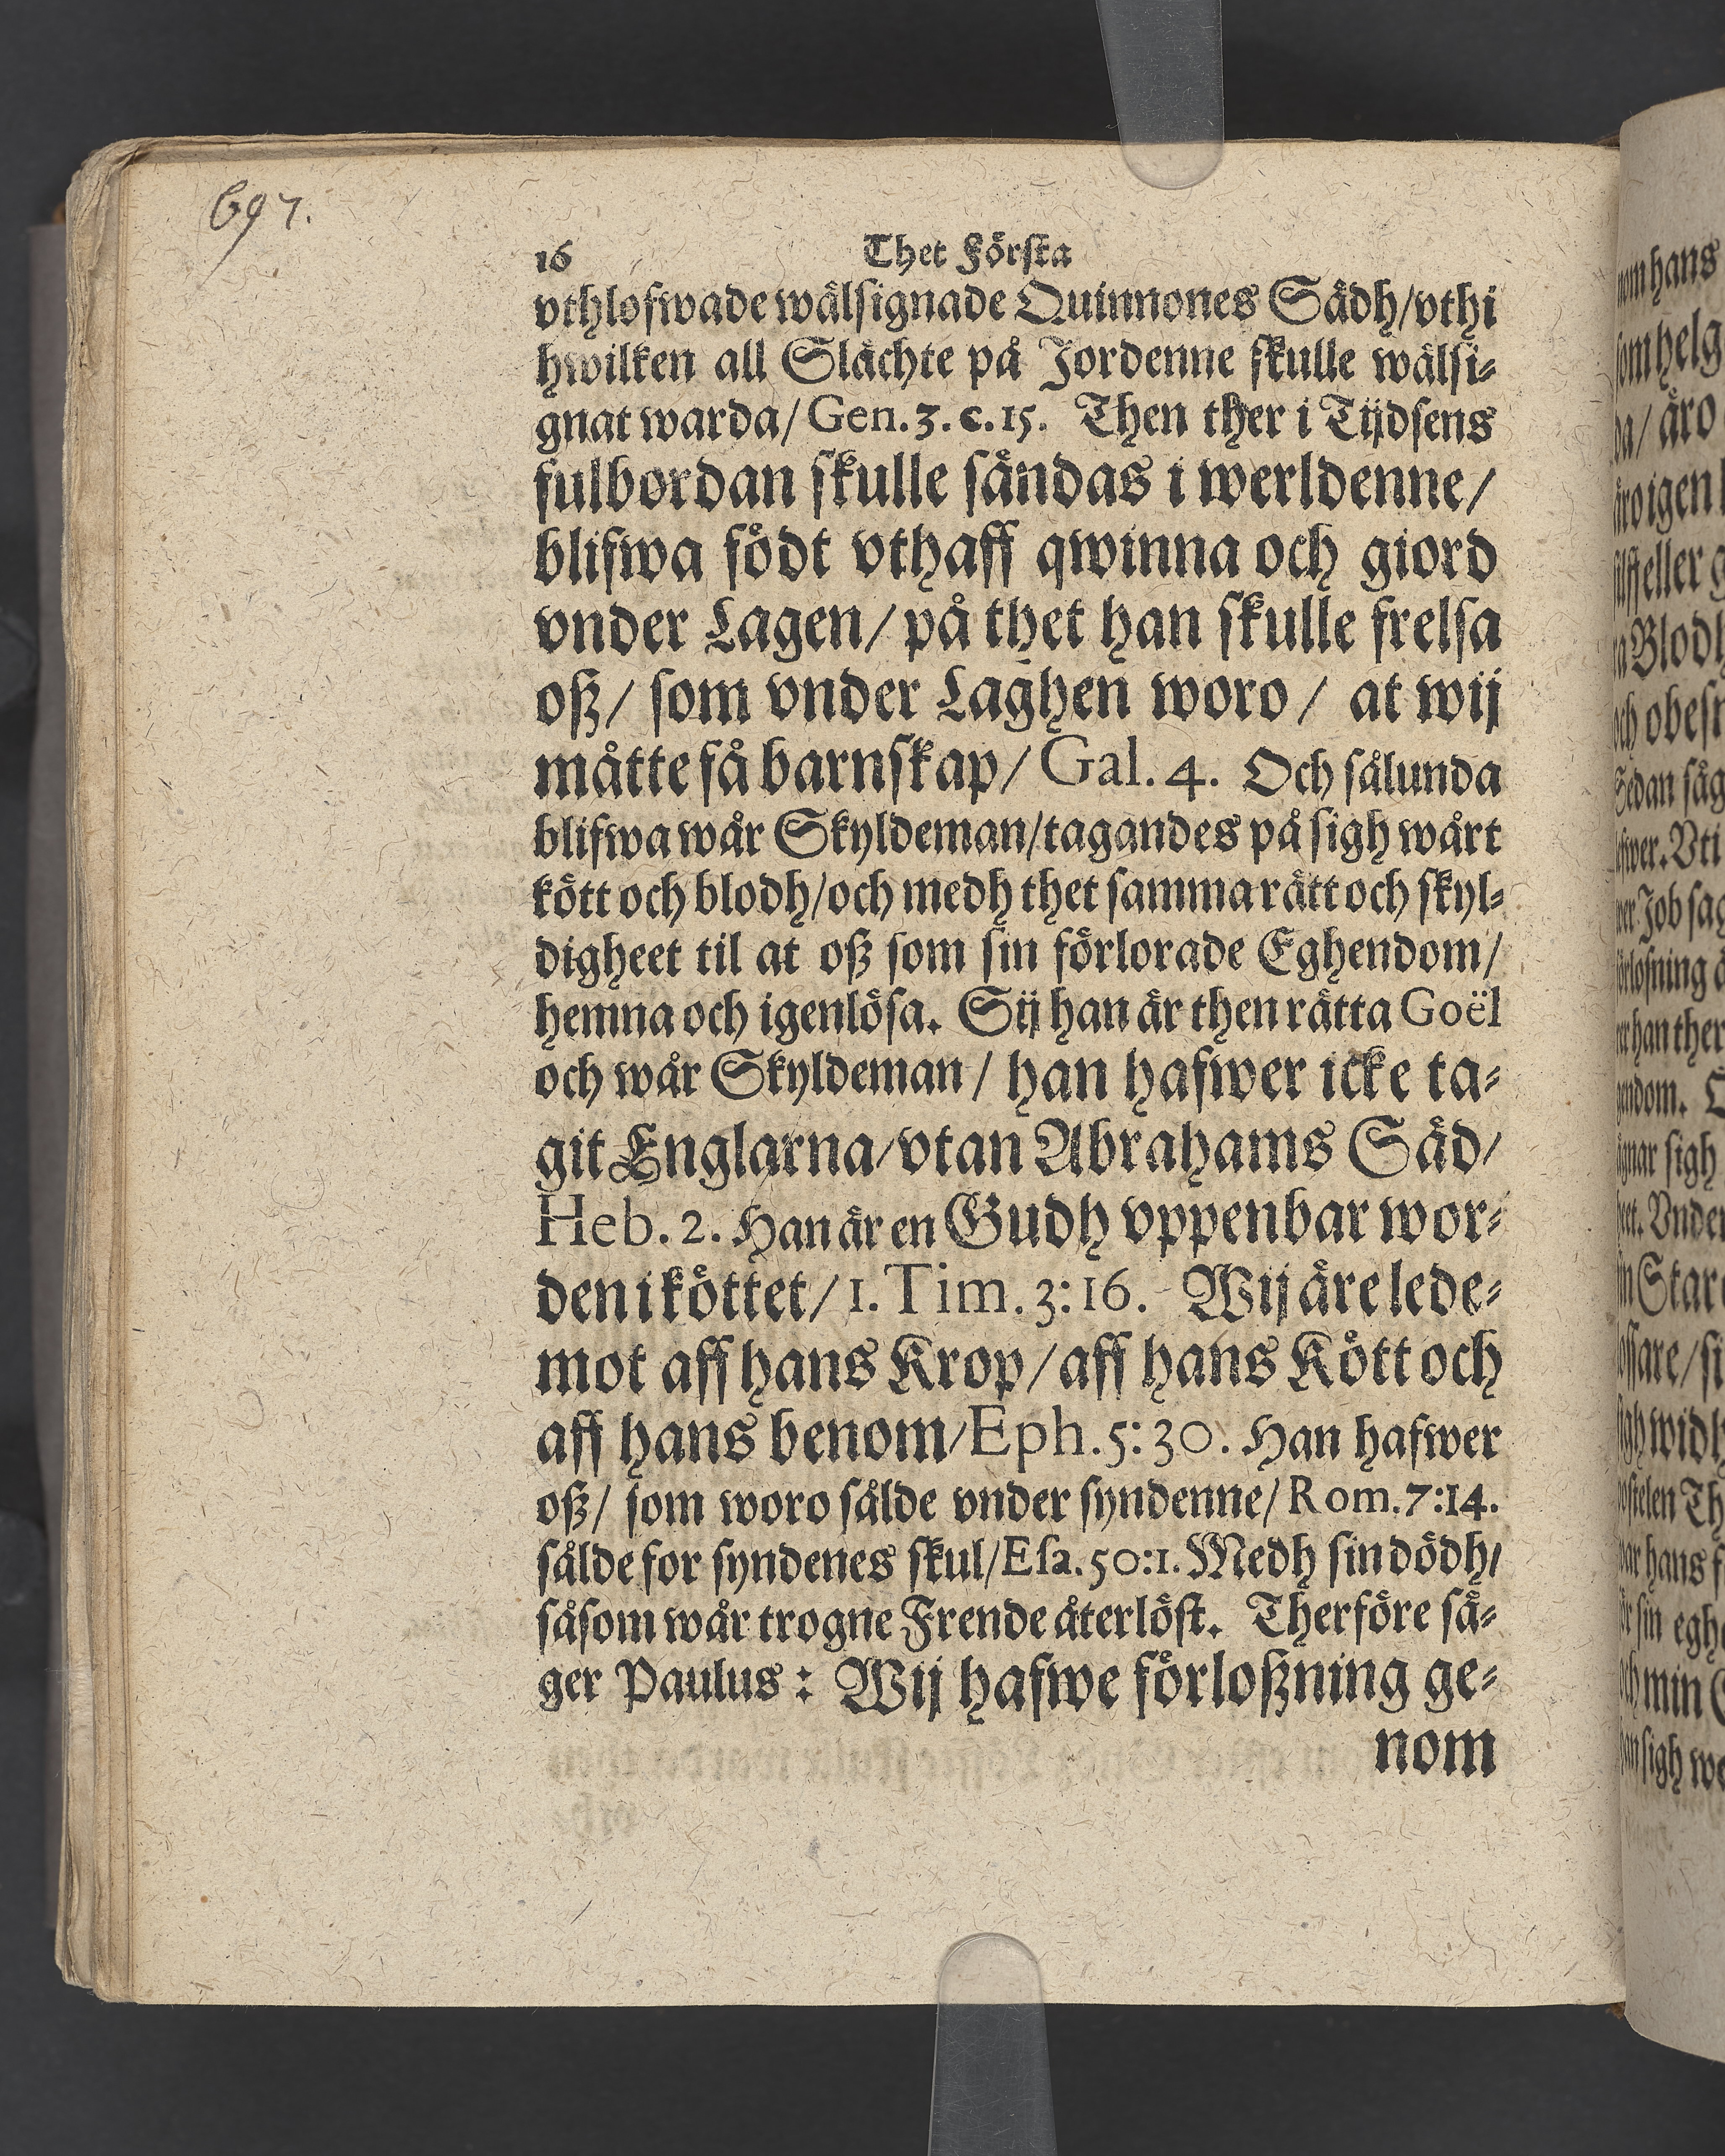 697.
16 Thet Första
vthlofwade wälsignade Quinnones Sädh/vthi
hwilken all Slächte på Jordenne skulle wälsi⸗
gnat warda/ Gen. 3. c. 15. Then ther i Tijdsens
fulbordan skulle sändas i werldenne/
blifwa födt vthaff qwinna och giord
vnder Lagen/ på thet han skulle frelsa
oß/ som vnder Laghen woro/ at wij
måtte få barnskap/ Gal. 4. Och sålunda
blifwa wår Skyldeman/tagandes på sigh wårt
kött och blodh/och medh thet samma rätt och skyl⸗
digheet til at oß som sin förlorade Eghendom/
hemna och igenlösa. Sij han är then rätta Goël
och wår Skyldeman/ han hafwer icke ta⸗
git Englarna/vtan Abrahams Säd/
Heb. 2. Han är en Gudh vppenbar wor⸗
den i köttet/ 1. Tim. 3:16. Wij äre lede⸗
mot aff hans Krop/aff hans Kött och
aff hans benom/Eph. 5:30. Han hafwer
oß/ som woro sålde vnder syndenne/ Rom. 7:14.
sålde for syndenes skul/Esa. 50:1. Medh sin dödh/
såsom wår trogne Frende återlöst. Therföre sä⸗
ger Paulus: Wij hafwe förloßning ge⸗
nom
nom hans
som helg
da/ äro
äro igen
eller
Blodh
och
Sedan säg
Vti
Job
han ther
sigh
Vnder
widh
Th
hans
sin
min
sigh